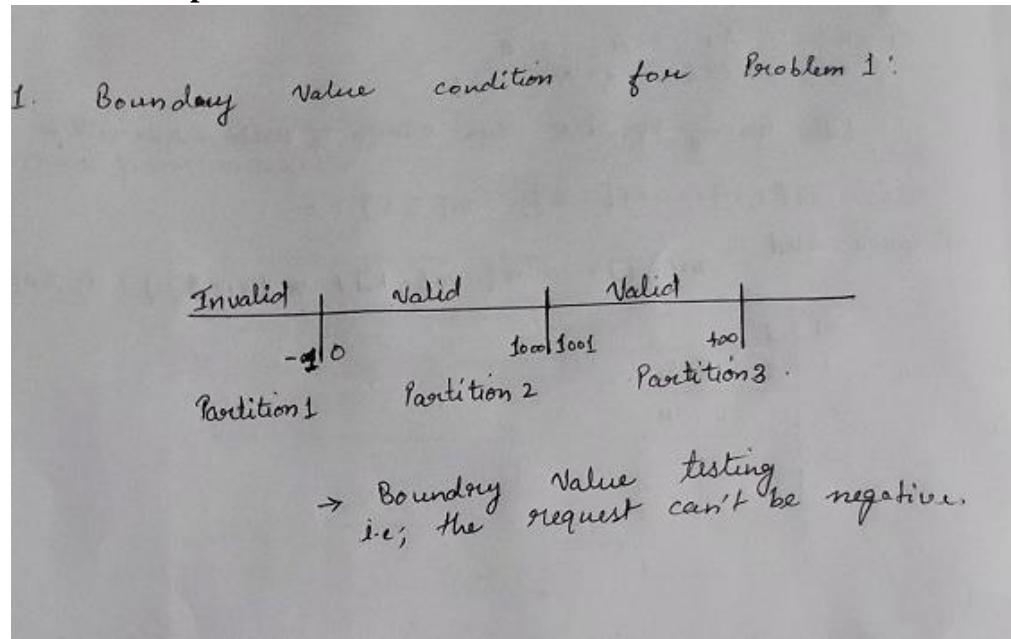 1. Boundary Value condition for Problem 1:
Invalid Valid Valid
-1 0 1000 1001 +∞
Partition 1 Partition 2 Partition 3.
→ Boundry Value testing
i.e; the request can't be negative.